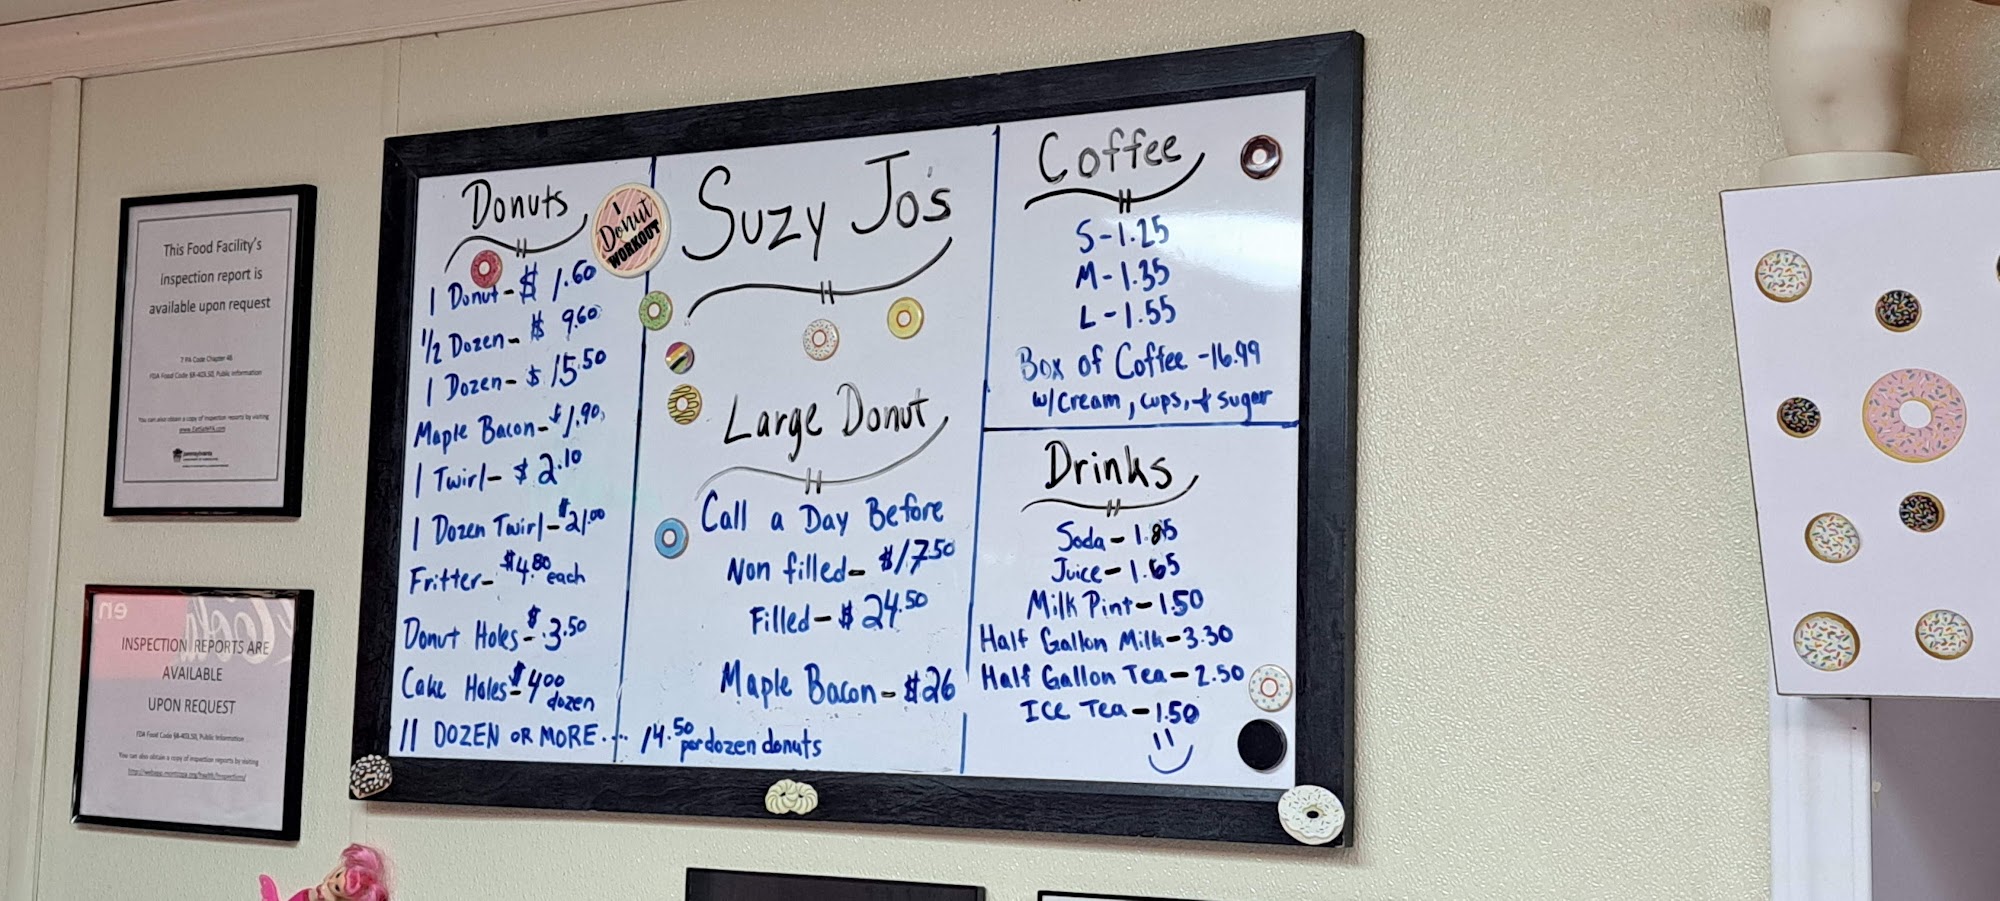 This Food Facility's
inspection report is
available upon request
7 PA Code Chapter 46
FDA Food Code §8-403.50, Public Information
You can also obtain a copy of inspection reports by visiting
www.EatSafePA.com
pennsylvania
INSPECTION REPORTS ARE
AVAILABLE
UPON REQUEST
FDA Food Code §8-403.50, Public Information
You can also obtain a copy of inspection reports by visiting
Donuts
1 Donut - $ 1.60
1/2 Dozen - $ 9.60
1 Dozen - $ 15.50
Maple Bacon - $1.90
1 Twirl - $ 2.10
1 Dozen Twirl - $21.00
Fritter - $4.80 each
Donut Holes - $3.50
Cake Holes - $4.00
dozen
11 DOZEN OR MORE.... 14.50 per dozen donuts
I
Donut
WORKOUT
Suzy Jo's
Large Donut
Call a Day Before
Non filled - $17.50
Filled - $ 24.50
Maple Bacon - $26
Coffee
S - 1.25
M - 1.35
L - 1.55
Box of Coffee - 16.99
w/cream, cups, + sugar
Drinks
Soda - 1.85
Juice - 1.65
Milk Pint - 1.50
Half Gallon Milk - 3.30
Half Gallon Tea - 2.50
Ice Tea - 1.50